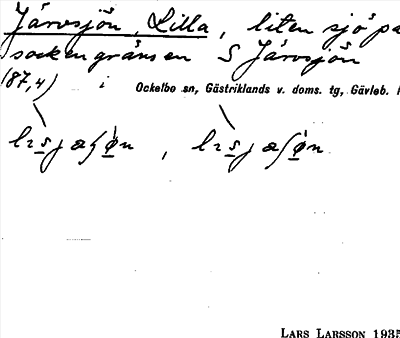 Järvsjön, Lilla, liten sjö på
sockengränsen S Järvsjön
(87,4) i Ockelbo sn, Gästriklands v. doms. tg, Gävleb.
LARS LARSSON 1935